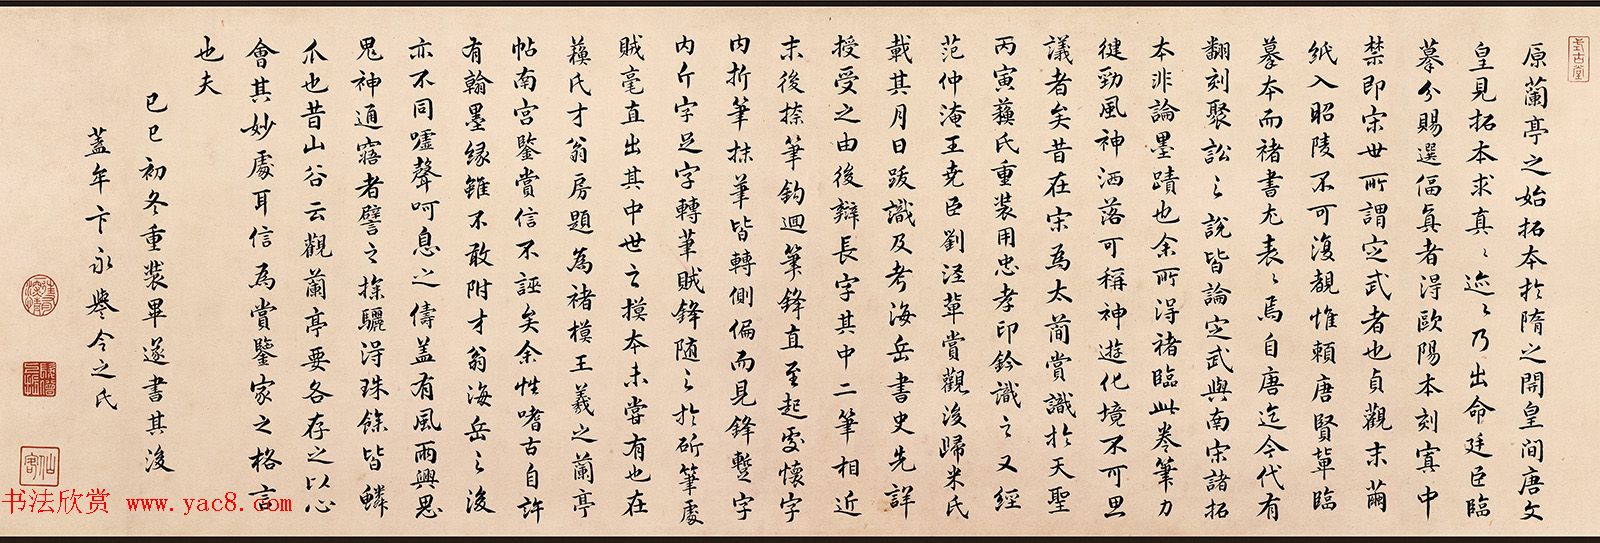 原蘭亭之始拓本於隋之開皇間唐文
皇見拓本求真〻迹〻乃出命廷臣臨
摹分賜選偪真者得歐陽本刻寘中
禁即宋世所謂定武者也貞觀末繭
紙入昭陵不可復覩惟賴唐賢輩臨
摹本而褚書尤表〻焉自唐迄今代有
翻刻聚訟之說皆論定武與南宋諸拓
本非論墨蹟也余所得褚臨此卷筆力
健勁風神洒落可稱神遊化境不可思
議者矣昔在宋為太簡賞識於天聖
丙寅蘓氏重裝用忠孝印鈐識之又經
范仲淹王堯臣劉涇輩賞觀後歸米氏
載其月日跋識及考海岳書史先詳
授受之由後辯長字其中二筆相近
末後捺筆鈎迴筆鋒直至起處懷字
内折筆抹筆皆轉側偏而見鋒蹔字
内斤字足字轉筆賊鋒随之於斫筆處
賊毫直出其中世之摸本未嘗有也在
蘓氏才翁房題為褚模王羲之蘭亭
帖南宫鑒賞信不誣矣余性嗜古自許
有翰墨緣雖不敢附才翁海岳之後
亦不同嘘聲呵息之儔盖有風雨興思
鬼神通寤者譬之探驪得珠餘皆鱗
爪也昔山谷云觀蘭亭要各存之以心
會其妙處耳信為賞鑒家之格言
也夫
己巳初冬重裝畢遂書其後
蓋年卞永譽令之氏
式古堂
仙客
书法欣赏 www.yac8.com